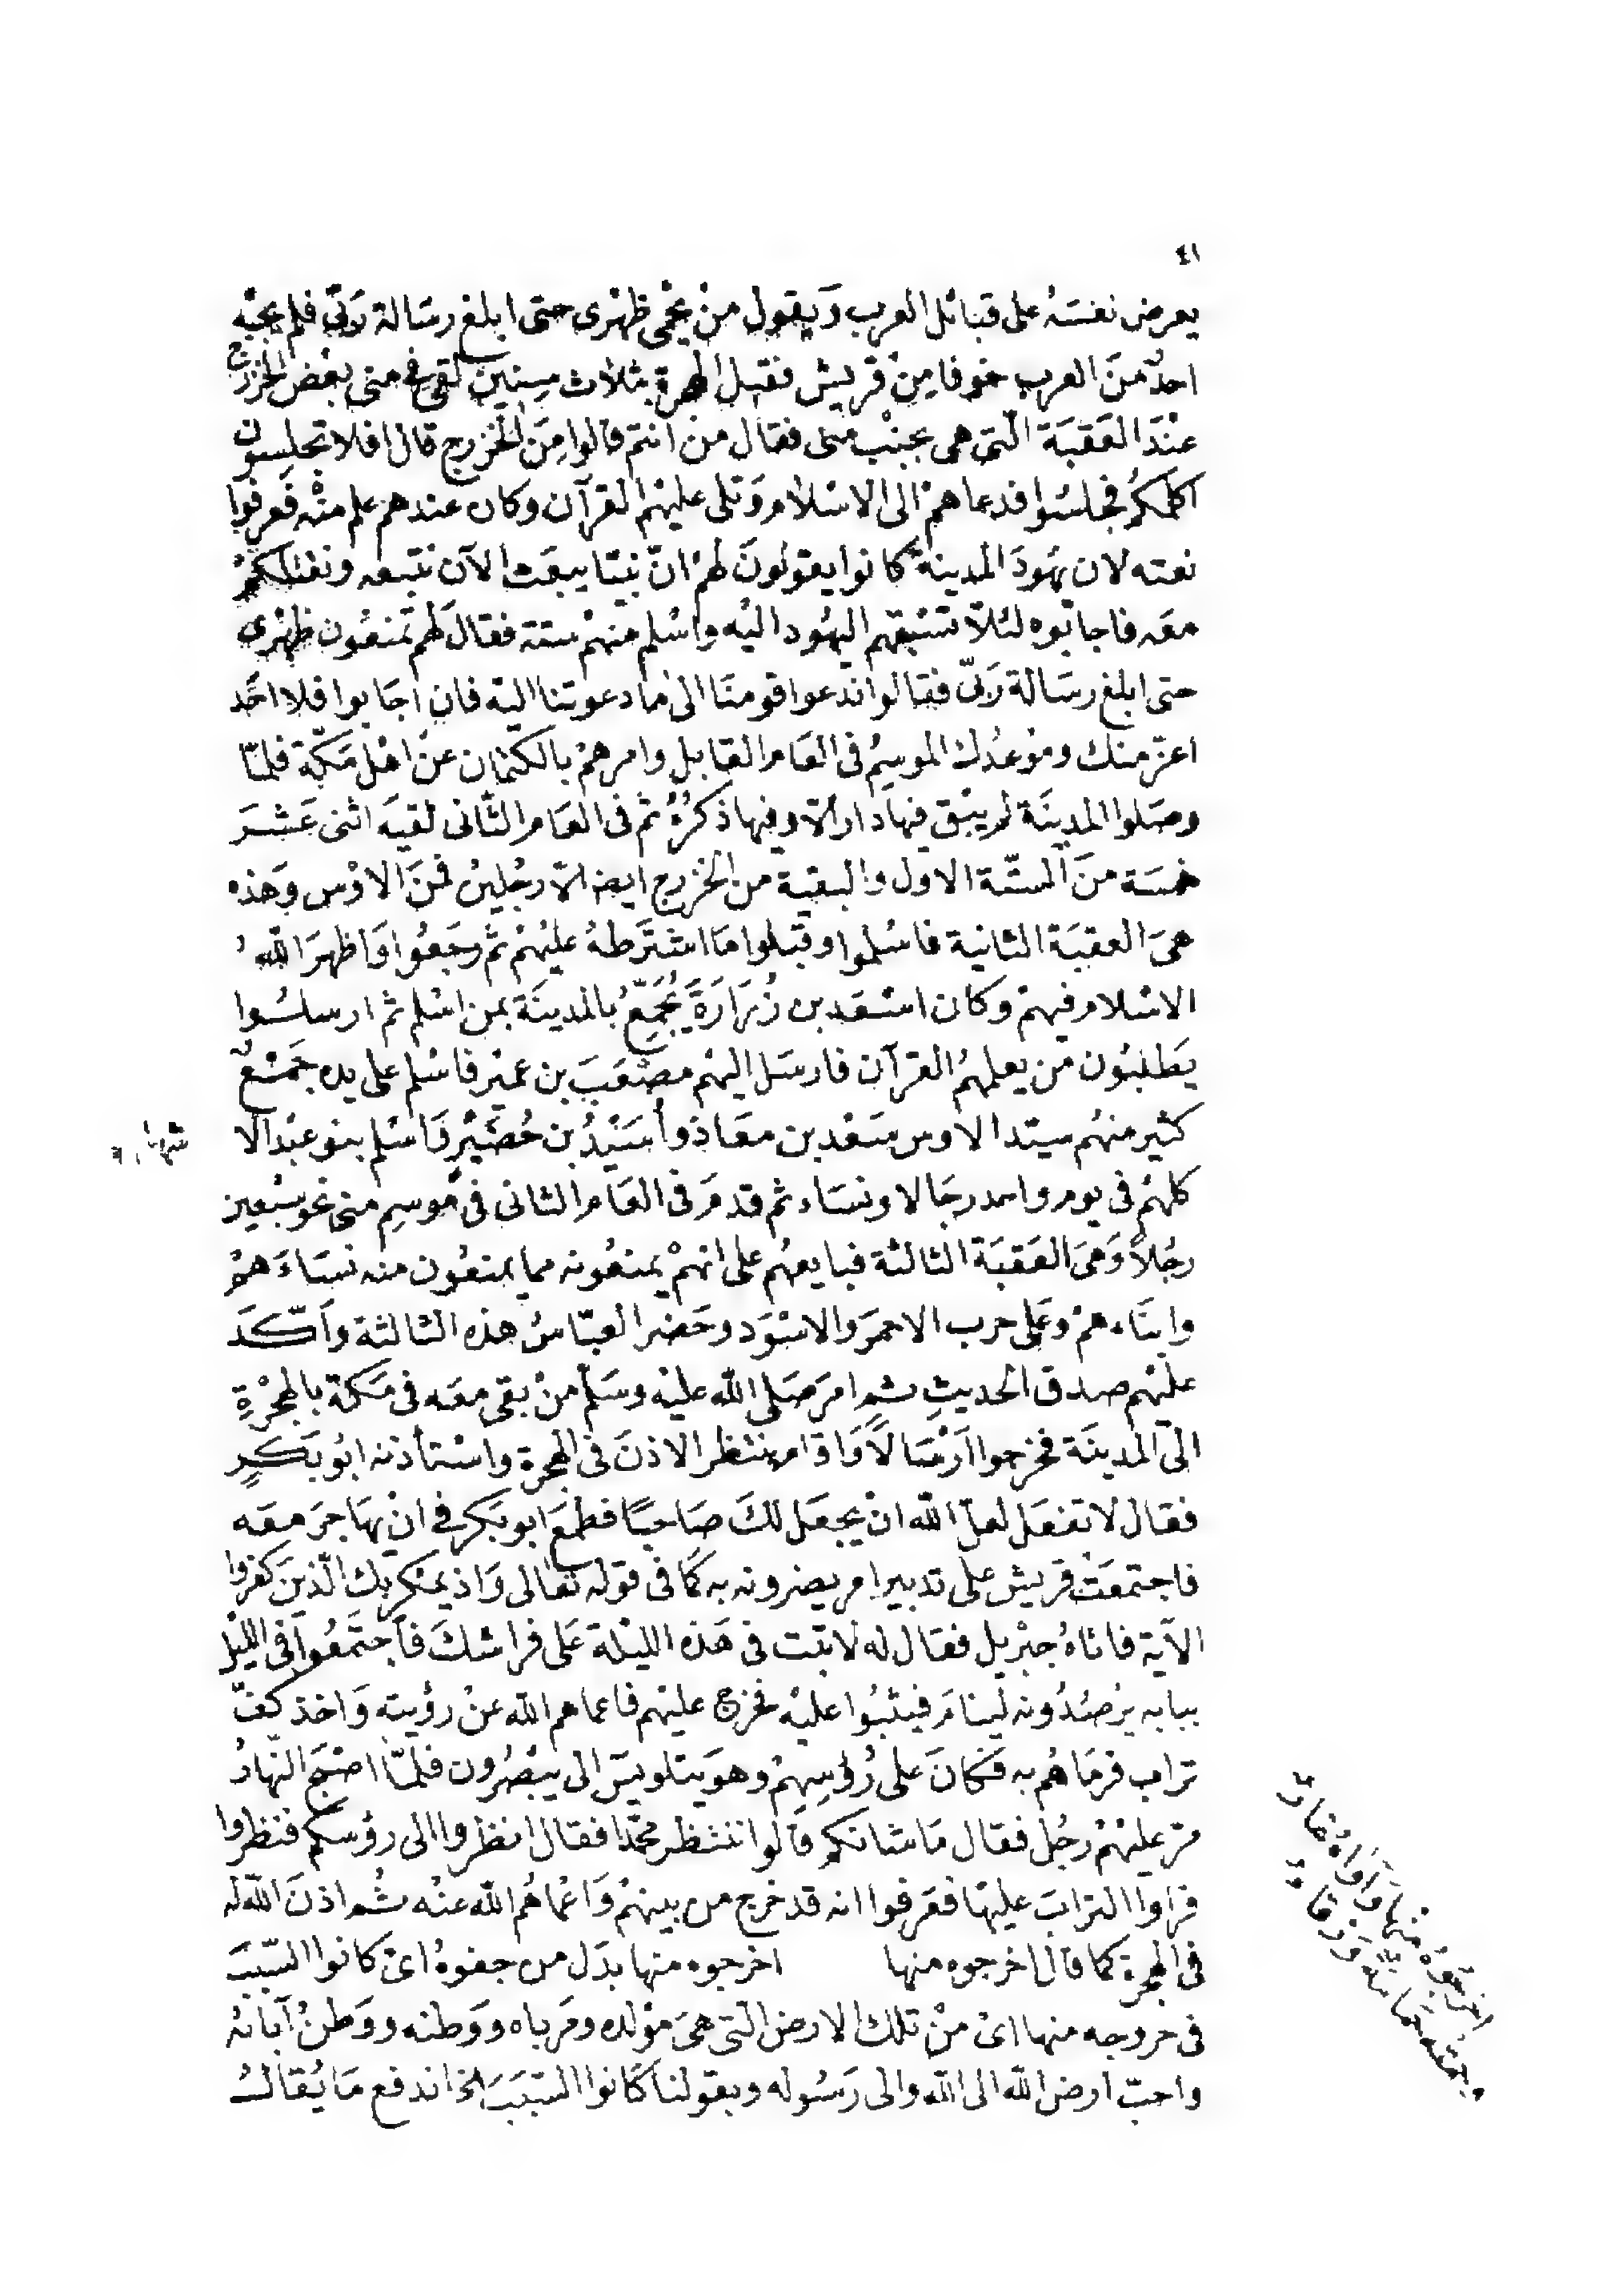 ٤١
يعرض نفسَهُ على قبائل العرب وَيقول منْ يحْمى ظهْرى حتى ابلغ رسَالة رَبّى فلم يجبْه
احدٌ منَ العرب خوفا مِنْ قريش فقبل الهجرة بثلاث سِنِينَ لقى فى منى بعْض الخزرج
عنْدَ العَقبَة الّتى هى بجنْب منى فقال من انتم قالوا مِنَ الخزرج قال افلا تجلِسون
اكلمكمُ فجلسُوا فدعاهمْ الى الاسْلام وَتلى عليْهم القرآن وكان عندهم علم منْه فعرفوا
نعته لان يهُودَ المدينة كانوا يقولونَ لهمْ انّ نبيّا يبعَث الآن نتبعه ونقتلكمْ
معَه فاجابُوه لئلاّ تسْبقهم اليهُود اليْه واسْلم منهمْ ستة فقالَ لهم تمنعُون ظهْرى
حتى ابلغ رسَالة رَبّى فقالوا ندعوا قومنَا الى ما دعوتنا اليْه فان اجَابوا فلا احَد
اعزّ منك ومؤعدُك الموسِمُ فى العَام القابل وامرهمْ بالكتمان عنْ اهْل مَكّة فلمّا
وصَلوا المدينَة لم يبْق فيها دار الاّ وفيها ذكرُهُ ثم فى العَام الثّانى لقيَه اثنى عَشَرَ
خمسَة منَ السّتّة الاول والبقية من الخزرج ايضا الاّ رجُليْن فمنَ الاوْس وَهَذه
هىَ العقبَة الثانية فاسْلموا وقبَلوا مَا اشترَطهُ عليْهمْ ثم رجَعُوا وَاظهرَ اللّهُ
الاسْلام فيهمْ وكان اسْعَد بن زُرَارَةَ يُجَمِّعُ بالمدينَة بمن اسْلم ثم ارسلسُوا
يَطلبُون من يعلمهُم القرآن فارسَل اليهْم مصْعَبَ بن عميْر فاسْلم على يده جَمْعٌ
كثير منهُم سيّد الاوس سَعْد بن معَاذ وأسَيْدُ بن حُضَيْرٍ فَاسْلم بنو عبْد الا شهل
كلهمْ فى يوم واحد رجَالا ونسَاء ثم قدمَ فى العَام الثانى فى مَوسِم منى نحو سبْعين
رجُلاً وَهىَ العَقبَة الثالثة فبايعهُم على انهمْ يمنعُونه مما يمنعُون منه نسَاءَهمْ
وابنَاءهمْ وعَلى حرب الاحمرَ والاسْوَد وحَضر العبّاسُ هذه الثالثة وأَكّدَ
عليْهم صدق الحديثِ ثم امرَ صَلى اللّه عليْه وسَلم منْ بقى معَه فى مَكة بالهجْرةِ
الى المدينَة فخرجوا اَرْسَالاً وَاقام ينتظر الاذنَ فى الهجرة واسْتأذنه ابُو بَكرٍ
فقال لا تفعَل لعلّ اللّه انْ يجعَل لكَ صَاحِبًا فطمعَ ابو بَكر فى انْ يهَاجرَ معَه
فاجتمعَتْ قريش على تدبير امر يضرونه به كما فى قوله تعَالى وَاذ يمكر بك الّذينَ كفروا
الآية فاتاهُ جبْريل فقال له لا تبَت فى هَذه الليْلة عَلى فراشكَ فَاجتَمَعُوا فى الليْل
ببابه يرْصُدُونه لينامَ فيثبُوا عليْه فخرج عليْهم فاعماهم اللّه عنْ رؤيته وَاخذ كفّ
تراب فرمَاهُم به فكانَ على رُؤسِهمْ وهوَ يتلو يس الى يبْصُرون فلمّا اصْبَح النّهارُ
مرّ عليْهمْ رجُل فقال مَا شانكم قالوا ننتظر محمّدا فقال انظروا الى رؤسكم فنظروا
فراوا الترابَ عليْها فعَرفوا انه قد خرج من بينهمْ وَاعْماهُم اللّه عنْه ثُم اذنَ اللّه له
فى الهجرة كما قال اخرجوه منها اخرجوه منها بدَل من جفوهُ اىْ كانوا السّببَ
فى خروجه منها اىْ منْ تلك الارض الّتى هىَ موْلده ومَرباه ووَطنه ووَطنُ آبَائه
واحبّ ارض اللّه الى اللّه والى رَسُوله وبقولنا كَانوا السّببَ الخ اندفع مَا يُقالُ
اخرجوُه منها وَآوَاهُ غارٌ
وحمته حمامَة وَرْقاءُ